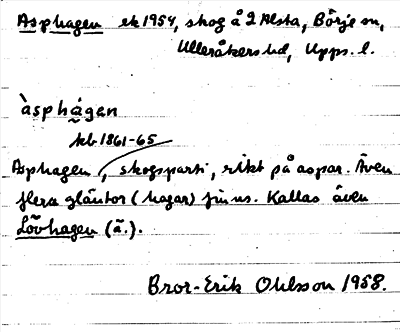 Asphagen ek 1954, skog å 2 Alsta, Börje sn,
Ulleråkers hd, Upps. l.
àsphágen
kb 1861-65
Asphagen, skogsparti, rikt på aspar. Även
flera gläntor (hagar) finns. Kallas även
Lövhagen (ä.).
Bror-Erik Ohlsson 1958.